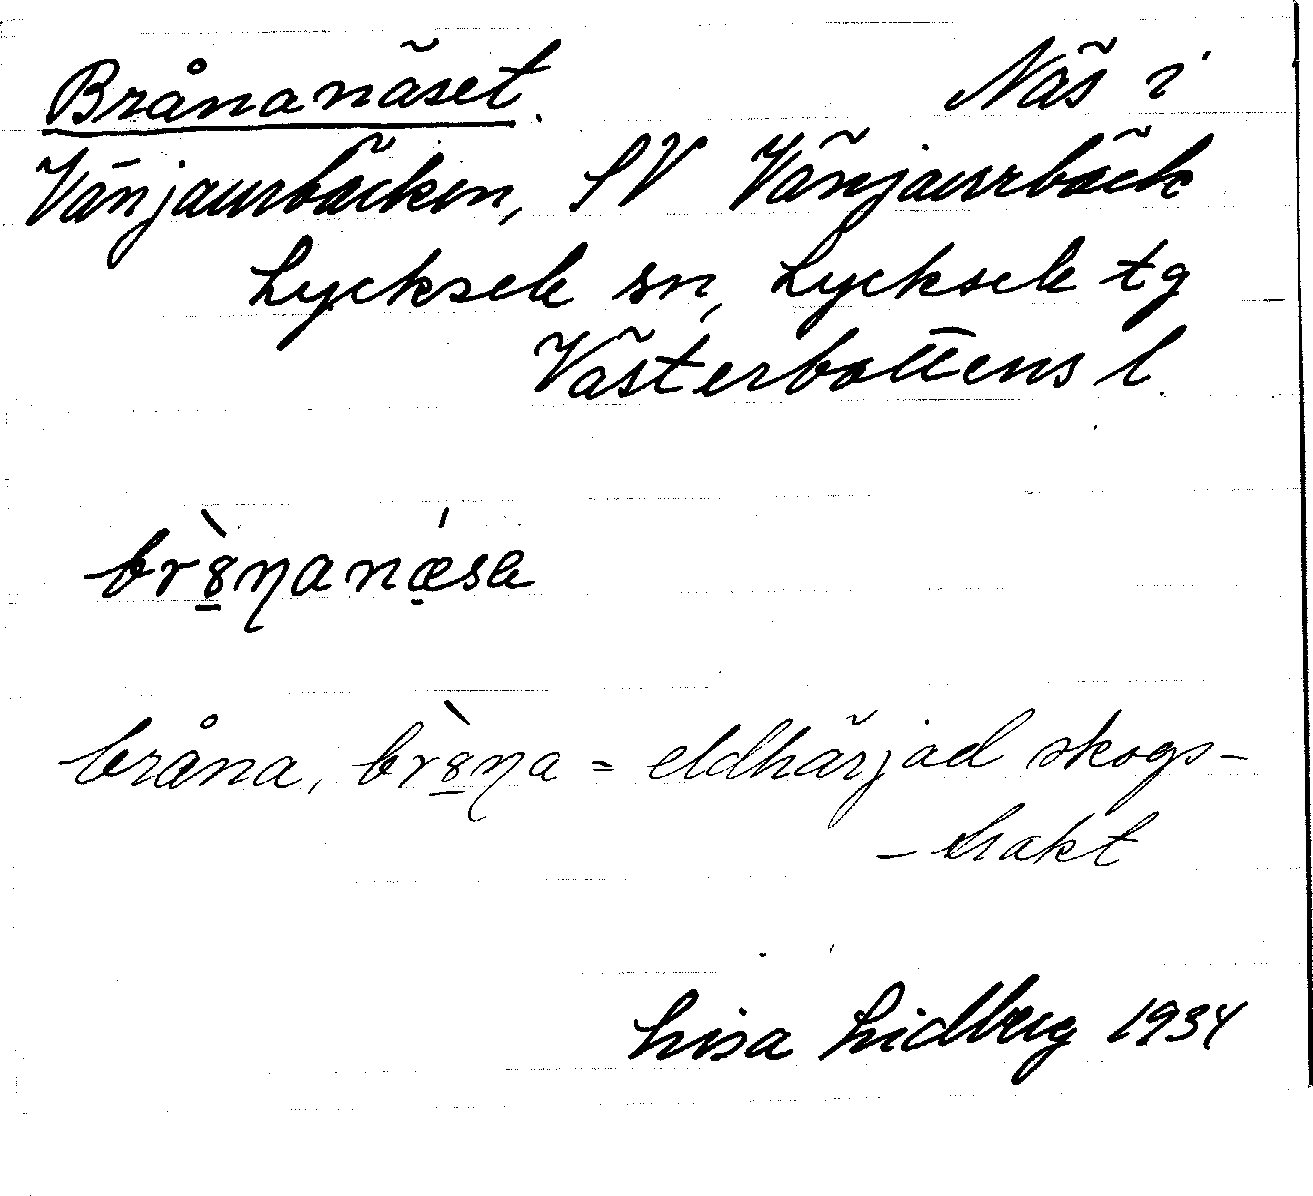 Brånanäset. Näs i
Vänjaurbäcken, SV Vänjaurbäck
Lycksele sn, Lycksele tg
Västerbottens l.
brò̱ŋanǽ̣sa
bråna, brò̱ŋa = eldhärjad skogs-
- trakt
Lisa Lidberg 1934